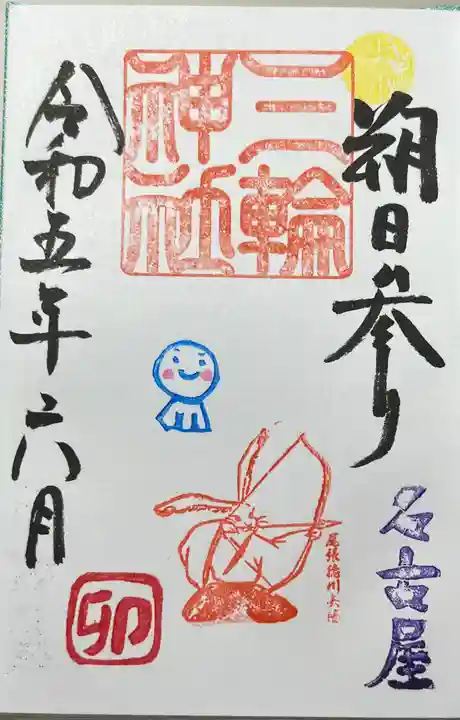 朔日参り
名古屋
三輪
神社
尾張徳川大的
令和五年六月
卯